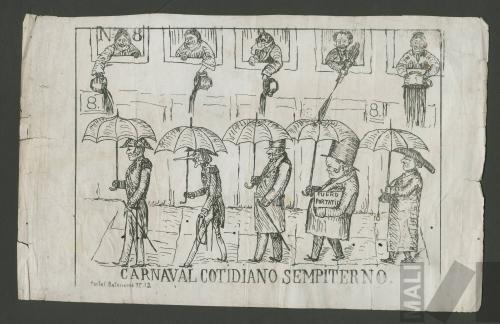 Nº 8
8.
8.
FUERO
PORTATIL
CARNAVAL COTIDIANO SEMPITERNO.
Portal Botoneros Nº 12
MALI